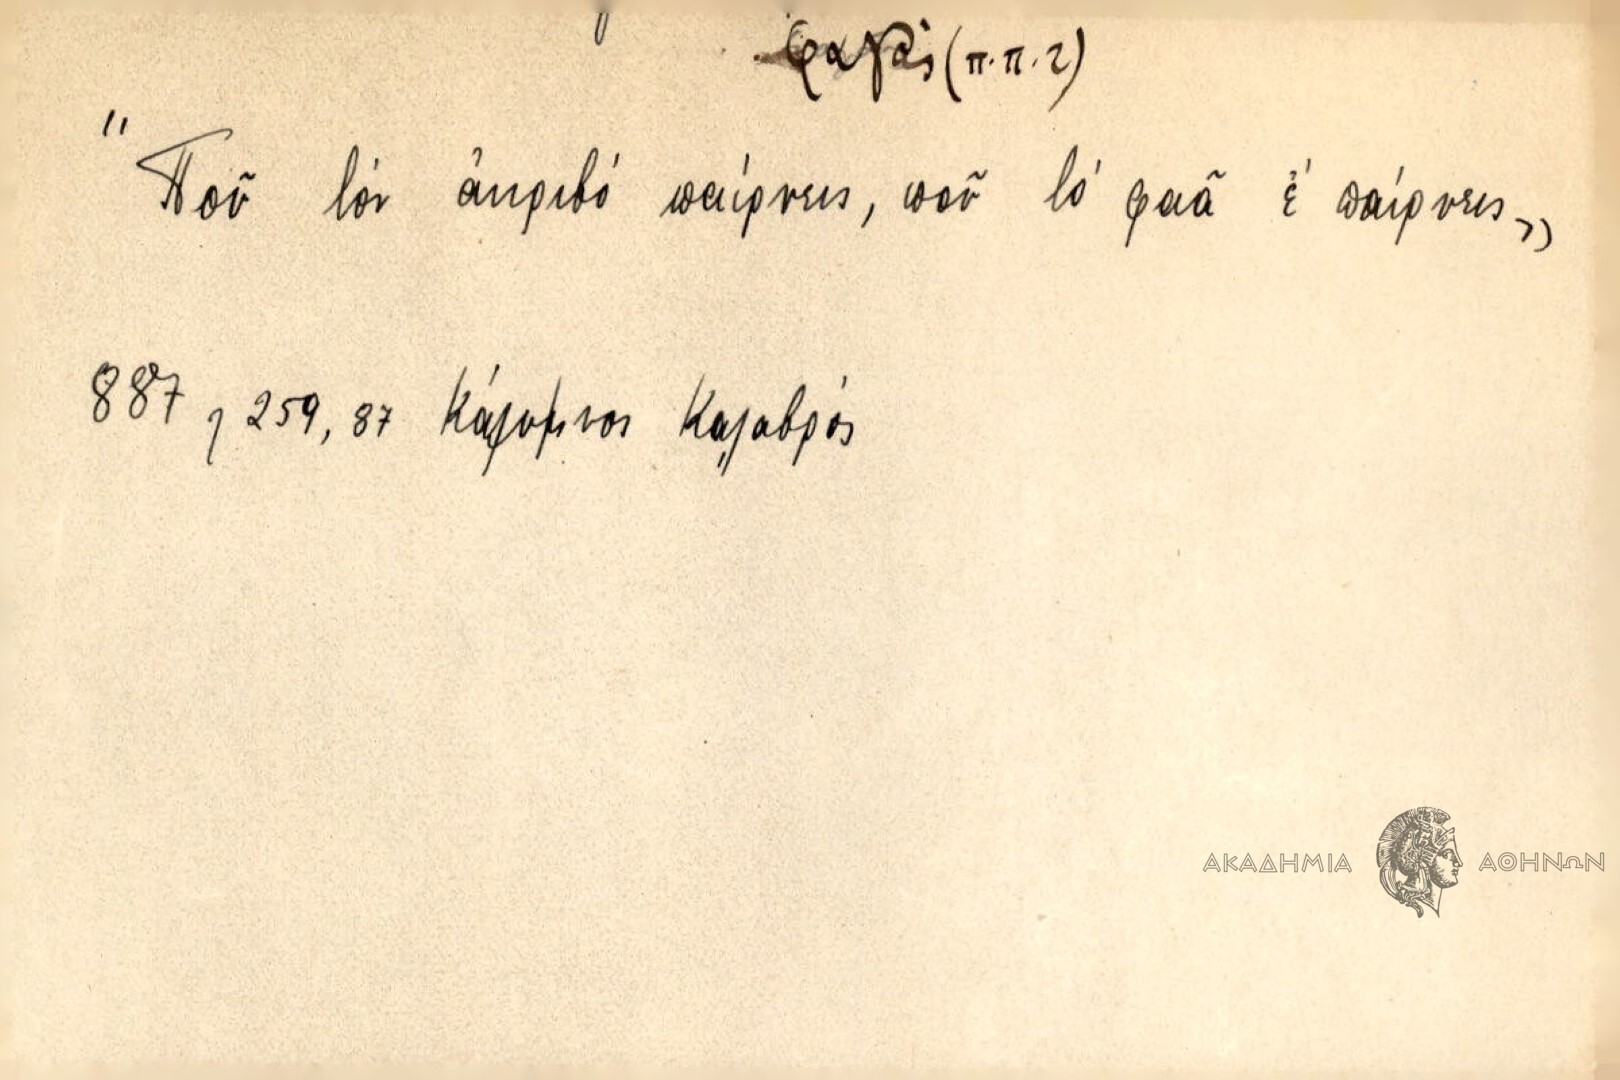 φαγᾶς (π.π.2)
"Ποῦ τὸν ἀκριβό παίρνεις, ποῦ τὸ φαᾶ ἐ παίρνεις"
887, 259, 87 Κάλυμνος Καλαβρός
ΑΚΑΔΗΜΙΑ ΑΘΗΝΩΝ